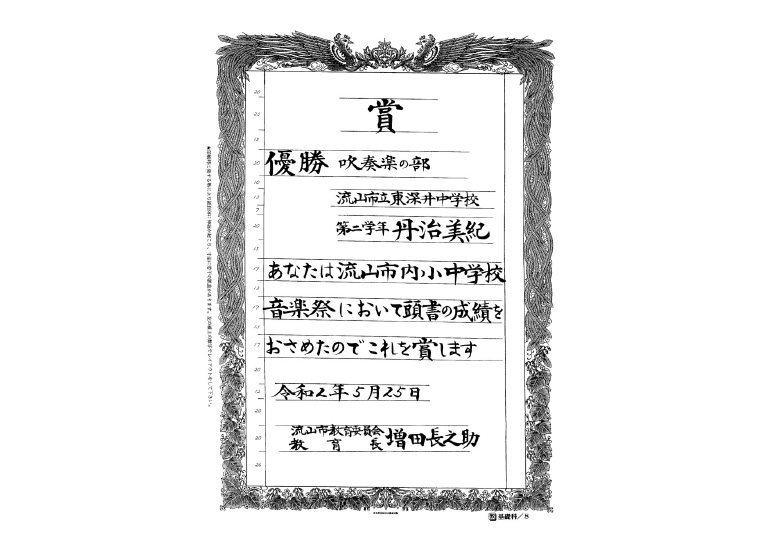 賞
優勝 吹奏楽の部
流山市立東深井中学校
第二学年 丹治美紀
あなたは流山市内小中学校
音楽祭において頭書の成績を
おさめたのでこれを賞します
令和2年5月25日
流山市教育委員会
教育長 増田長之助
基礎科/8